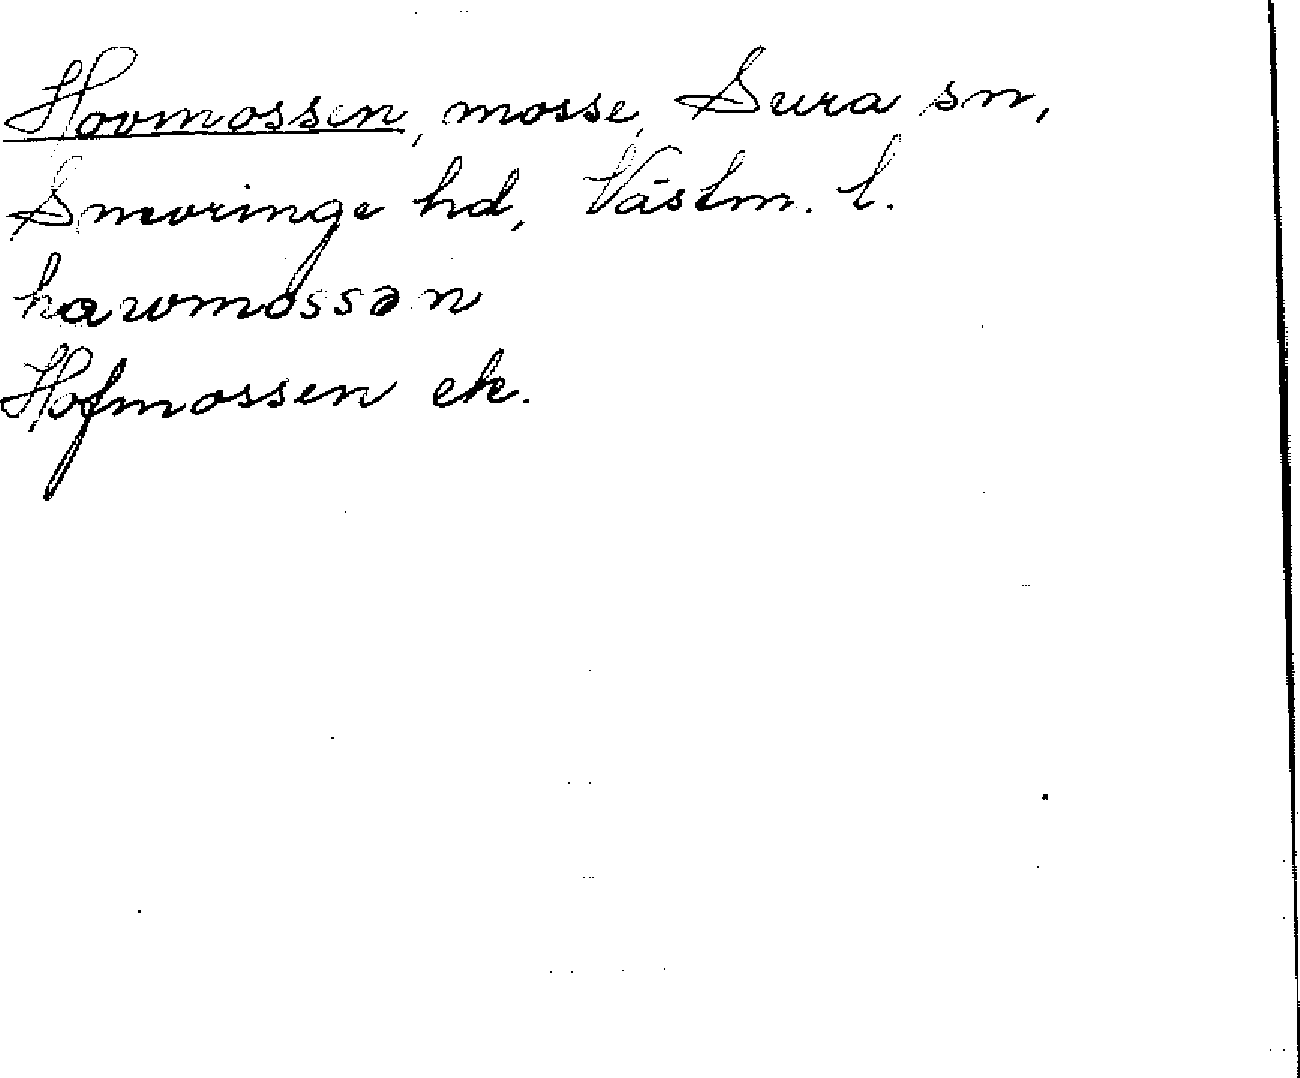 Hovmossen, mosse, Sura sn,
Snevringe hd, Västm. l.
hawmossən
Hofmossen ek.